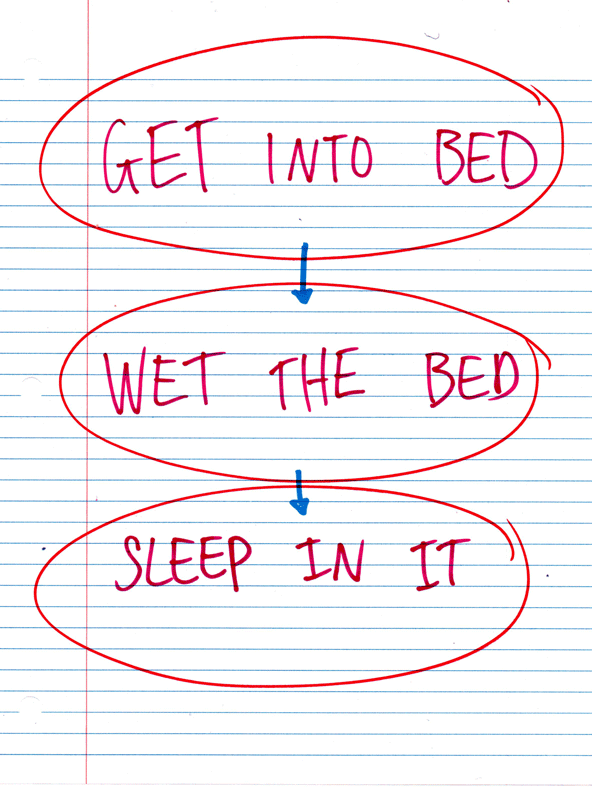 GET INTO BED
WET THE BED
SLEEP IN IT